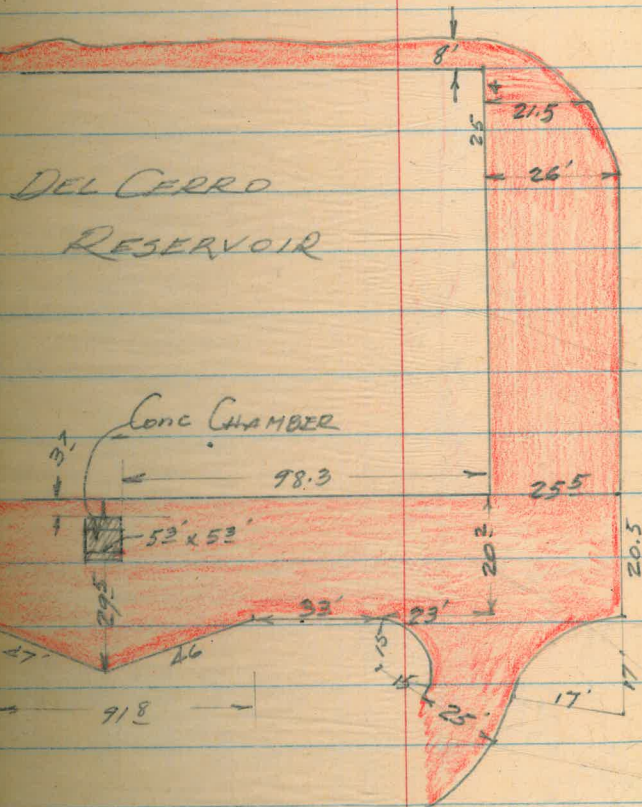 8'
4
21.5
25
26'
DEL CERRO
RESERVOIR
Conc CHAMBER
98.3
25 5
5 3' x 5 3'
20.5
29.5
33'
23'
15
15
46
47
91 8
25'
17'
17'